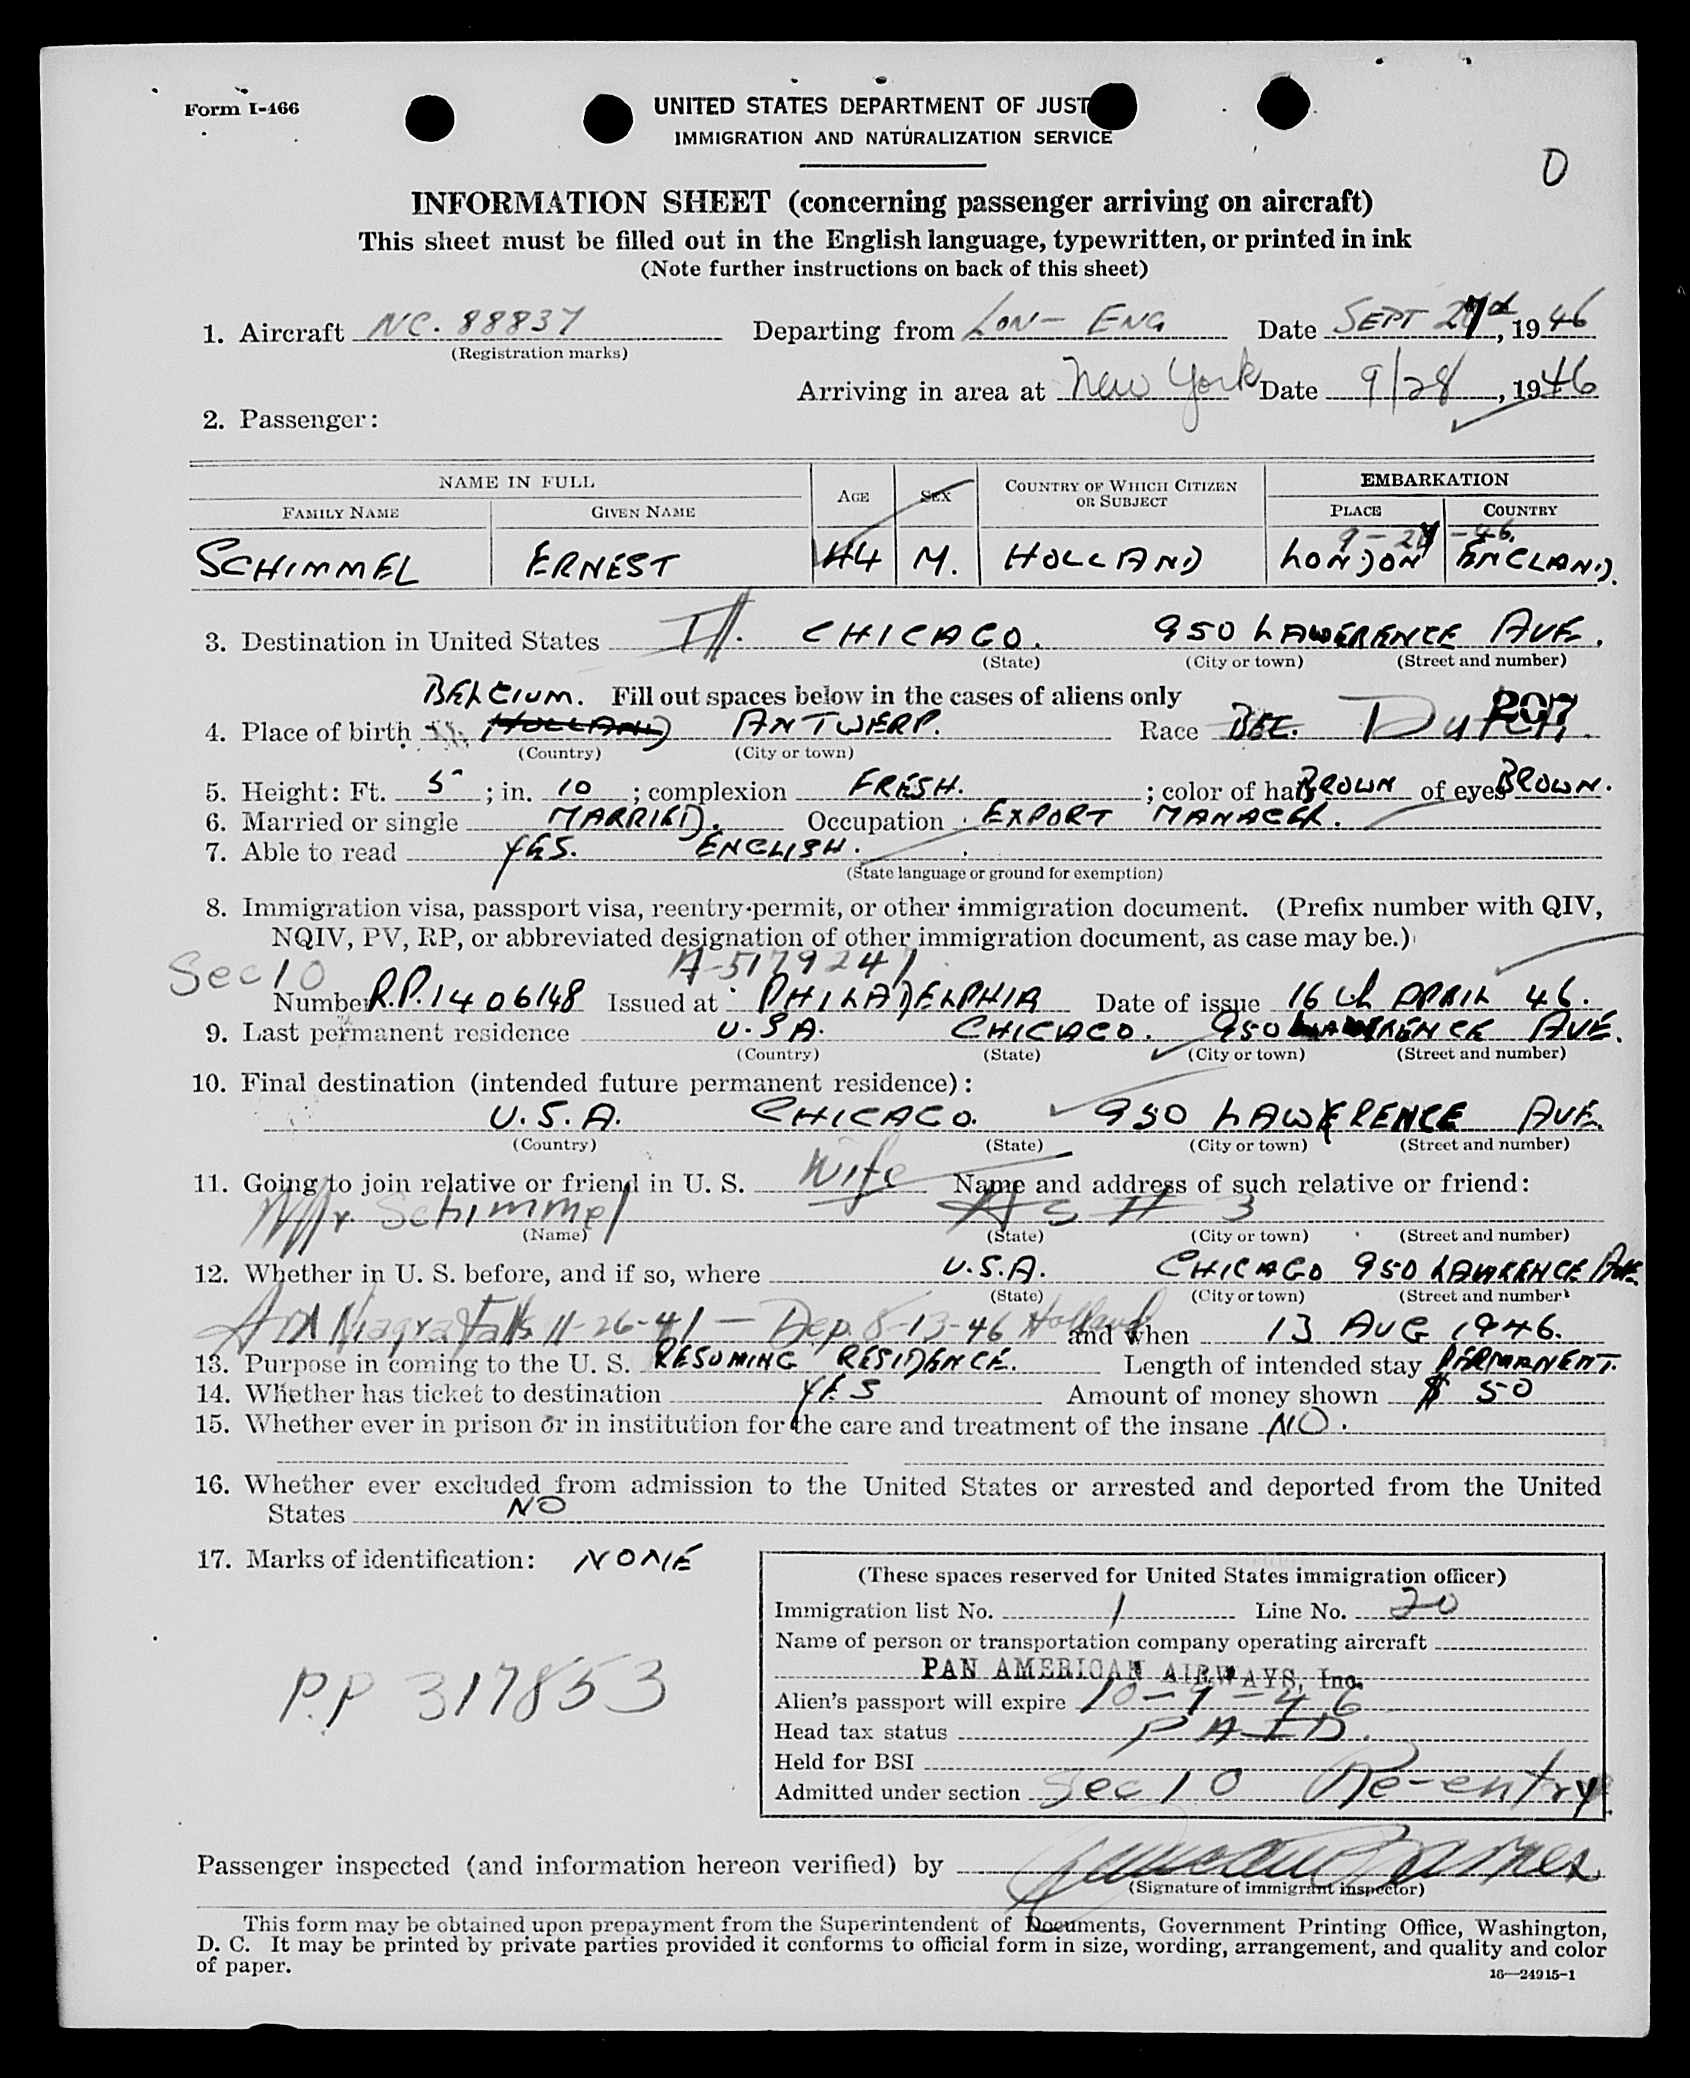 Form I-466
UNITED STATES DEPARTMENT OF JUST
IMMIGRATION AND NATURALIZATION SERVICE
O
INFORMATION SHEET (concerning passenger arriving on aircraft)
This sheet must be filled out in the English language, typewritten, or printed in ink
(Note further instructions on back of this sheet)
1. Aircraft NC. 88837 Departing from LON- ENG Date SEPT 27, 1946
(Registration marks)
Arriving in area at New York Date 9/28, 1946
2. Passenger:
NAME IN FULL AGE SEX COUNTRY OF WHICH CITIZEN OR SUBJECT EMBARKATION
FAMILY NAME GIVEN NAME PLACE COUNTRY
SCHIMMEL ERNEST 44 M. HOLLAND LONDON ENGLAND.
3. Destination in United States Ill. CHICAGO. 950 LAWERENCE AVE.
(State) (City or town) (Street and number)
BELGIUM. Fill out spaces below in the cases of aliens only
4. Place of birth HOLLAND ANTWERP. Race Dutch 207
(Country) (City or town)
5. Height: Ft. 5; in. 10; complexion FRESH.; color of hair BROWN of eyes BROWN.
6. Married or single MARRIED. Occupation EXPORT MANAGER.
7. Able to read YES. ENGLISH.
(State language or ground for exemption)
8. Immigration visa, passport visa, reentry permit, or other immigration document. (Prefix number with QIV,
NQIV, PV, RP, or abbreviated designation of other immigration document, as case may be.)
Sec 10 A-5179247
Number R.P. 1406148 Issued at PHILADELPHIA Date of issue 16th APRIL 46.
9. Last permanent residence U.S.A. CHICAGO. 950 LAWERENCE AVE.
(Country) (State) (City or town) (Street and number)
10. Final destination (intended future permanent residence):
U.S.A. CHICAGO. 950 LAWERENCE AVE.
(Country) (State) (City or town) (Street and number)
11. Going to join relative or friend in U. S. Wife Name and address of such relative or friend:
Schimmel AS # 3
(Name) (State) (City or town) (Street and number)
12. Whether in U. S. before, and if so, where U.S.A. CHICAGO 950 LAWRENCE AVE.
(State) (City or town) (Street and number)
Niagra Falls 11-26-41 - Dep. 8-13-46 Holland and when 13 AUG 1946.
13. Purpose in coming to the U. S. RESUMING RESIDENCE. Length of intended stay PERMANENT.
14. Whether has ticket to destination YES Amount of money shown $ 50
15. Whether ever in prison or in institution for the care and treatment of the insane NO.
16. Whether ever excluded from admission to the United States or arrested and deported from the United
States NO
17. Marks of identification: NONE
(These spaces reserved for United States immigration officer)
Immigration list No. 1 Line No. 20
Name of person or transportation company operating aircraft
PAN AMERICAN AIRWAYS, Inc.
P.P 317853
Alien's passport will expire 10-9-46
Head tax status PAID.
Held for BSI
Admitted under section Sec 10 Re-entry
Passenger inspected (and information hereon verified) by
(Signature of immigrant inspector)
This form may be obtained upon prepayment from the Superintendent of Documents, Government Printing Office, Washington,
D. C. It may be printed by private parties provided it conforms to official form in size, wording, arrangement, and quality and color
of paper.
16—24915-1